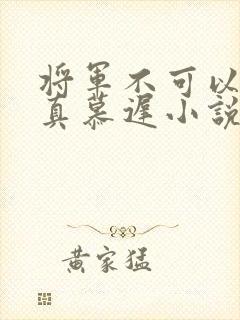 将軍不可以
真慕遲小說
黄家猛